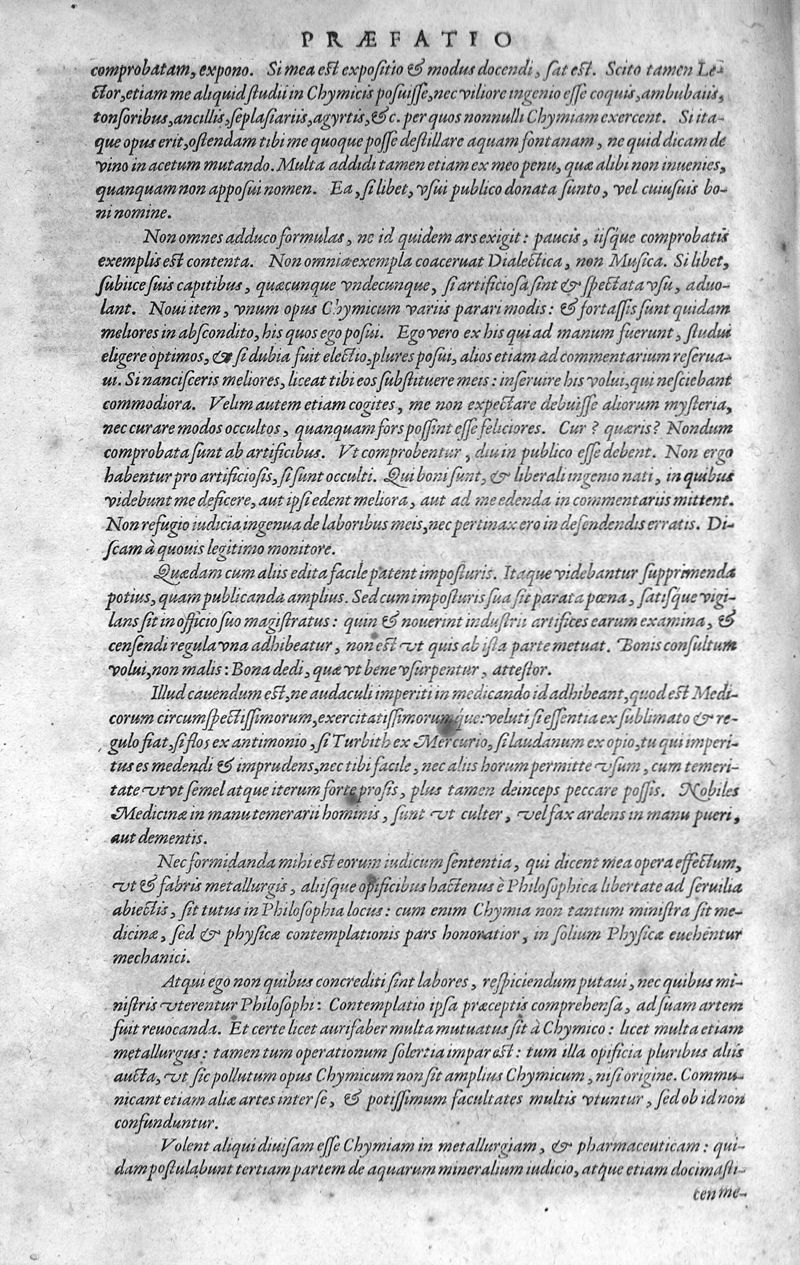 PRÆFATIO
comprobatam, expono. Si mea est expositio & modus docendi, sat est. Scito tamen Le-
ctor, etiam me aliquid studii in Chymicis posuisse, nec viliore ingenio esse coquis, ambubaiis,
tonsoribus, ancillis, seplasiariis, agyrtis, &c. per quos nonnulli Chymiam exercent. Si ita-
que opus erit, ostendam tibi me quoque posse destillare aquam fontanam, ne quid dicam de
vino in acetum mutando. Multa addidi tamen etiam ex meo penu, quæ alibi non inuenies,
quanquam non apposui nomen. Ea, si libet, vsui publico donata sunto, vel cuiusuis bo-
ni nomine.
Non omnes adduco formulas, nec id quidem ars exigit: paucis, iisque comprobatis
exemplis est contenta. Non omnia exempla coaceruat Dialectica, non Musica. Si libet,
subiice suis capitibus, quæcunque vndecunque, si artificiosa sint & spectata vsu, aduo-
lant. Noui item, vnum opus Chymicum variis parari modis: & fortassis sunt quidam
meliores in abscondito, his quos ego posui. Ego vero ex his qui ad manum fuerunt, studui
eligere optimos, & si dubia fuit electio, plures posui, alios etiam ad commentarium reserua-
ui. Si nancisceris meliores, liceat tibi eos substituere meis: inseruire his volui, qui nesciebant
commodiora. Velim autem etiam cogites, me non expectare debuisse aliorum mysteria,
nec curare modos occultos, quanquam fors possint esse feliciores. Cur? quæris? Nondum
comprobata sunt ab artificibus. Vt comprobentur, diu in publico esse debent. Non ergo
habentur pro artificiosis, si sunt occulti. Qui boni sunt, & liberali ingenio nati, in quibus
videbunt me deficere, aut ipsi edent meliora, aut ad me edenda in commentariis mittent.
Non refugio iudicia ingenua de laboribus meis, nec pertinax ero in defendendis erratis. Di-
scam à quouis legitimo monitore.
Quædam cum aliis edita facile patent imposturis. Itaque videbantur supprimenda
potius, quam publicanda amplius. Sed cum imposturis sua sit parata pœna, satisque vigi-
lans sit in officio suo magistratus: quin & nouerint industrii artifices earum examina, &
censendi regula vna adhibeatur, non est vt quis ab ista parte metuat. Bonis consultum
volui, non malis: Bona dedi, quæ vt bene vsurpentur, attestor.
Illud cauendum est, ne audaculi imperiti in medicando id adhibeant, quod est Medi-
corum circumspectissimorum, exercitatissimorumque: veluti si essentia ex sublimato & re-
gulo fiat, si flos ex antimonio, si Turbith ex Mercurio, si laudanum ex opio, tu qui imperi-
tus es medendi & imprudens, nec tibi facile, nec aliis horum permitte vsum, cum temeri-
tate vtvt semel atque iterum forte prosis, plus tamen deinceps peccare possis. Nobiles
Medicinæ in manu temerarii hominis, sunt vt culter, vel fax ardens in manu pueri,
aut dementis.
Nec formidanda mihi est eorum iudicum sententia, qui dicent mea opera effectum,
vt & fabris metallurgis, aliisque opificibus hactenus è Philosophica libertate ad seruilia
abiectis, sit tutus in Philosophia locus: cum enim Chymia non tantum ministra sit me-
dicinæ, sed & physicæ contemplationis pars honoratior, in solium Physicæ euehentur
mechanici.
Atqui ego non quibus concrediti sint labores, respiciendum putaui, nec quibus mi-
nistris vterentur Philosophi: Contemplatio ipsa præceptis comprehensa, ad suam artem
fuit reuocanda. Et certe licet aurifaber multa mutuatus sit à Chymico: licet multa etiam
metallurgus: tamen tum operationum solertia impar est: tum illa opificia pluribus aliis
aucta, vt sic pollutum opus Chymicum non sit amplius Chymicum, nisi origine. Commu-
nicant etiam aliæ artes inter se, & potissimum facultates multis vtuntur, sed ob id non
confunduntur.
Volent aliqui diuisam esse Chymiam in metallurgiam, & pharmaceuticam: qui-
dam postulabunt tertiam partem de aquarum mineralium iudicio, atque etiam docimasti-
cen me-